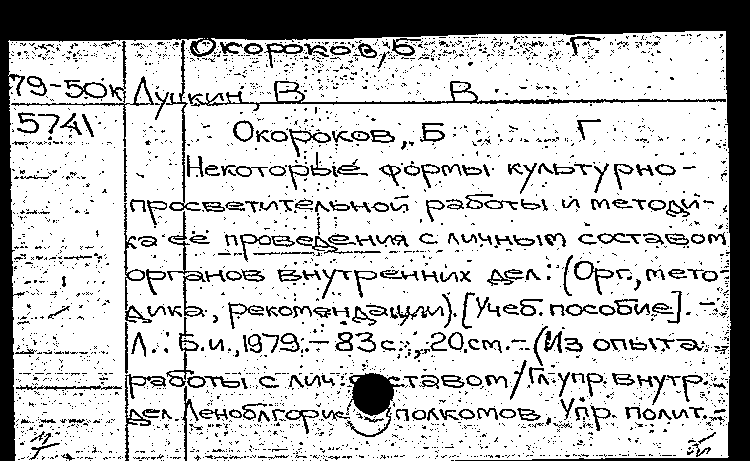 Окороков, Б Г
79-50к Лушкин, В В
5741
Окороков, Б Г
Некоторые формы культурно-
просветительной работы и методи-
ка ее проведения с личным составом
органов внутренних дел: (Орг., мето-
дика, рекомендации). [Учеб. пособие]. -
Л.: Б.и., 1979. - 83 с.; 20 см. - (Из опыта
работы с лич. составом / Гл. упр. внутр.
дел Леноблгорис полкомов, Упр. полит. -